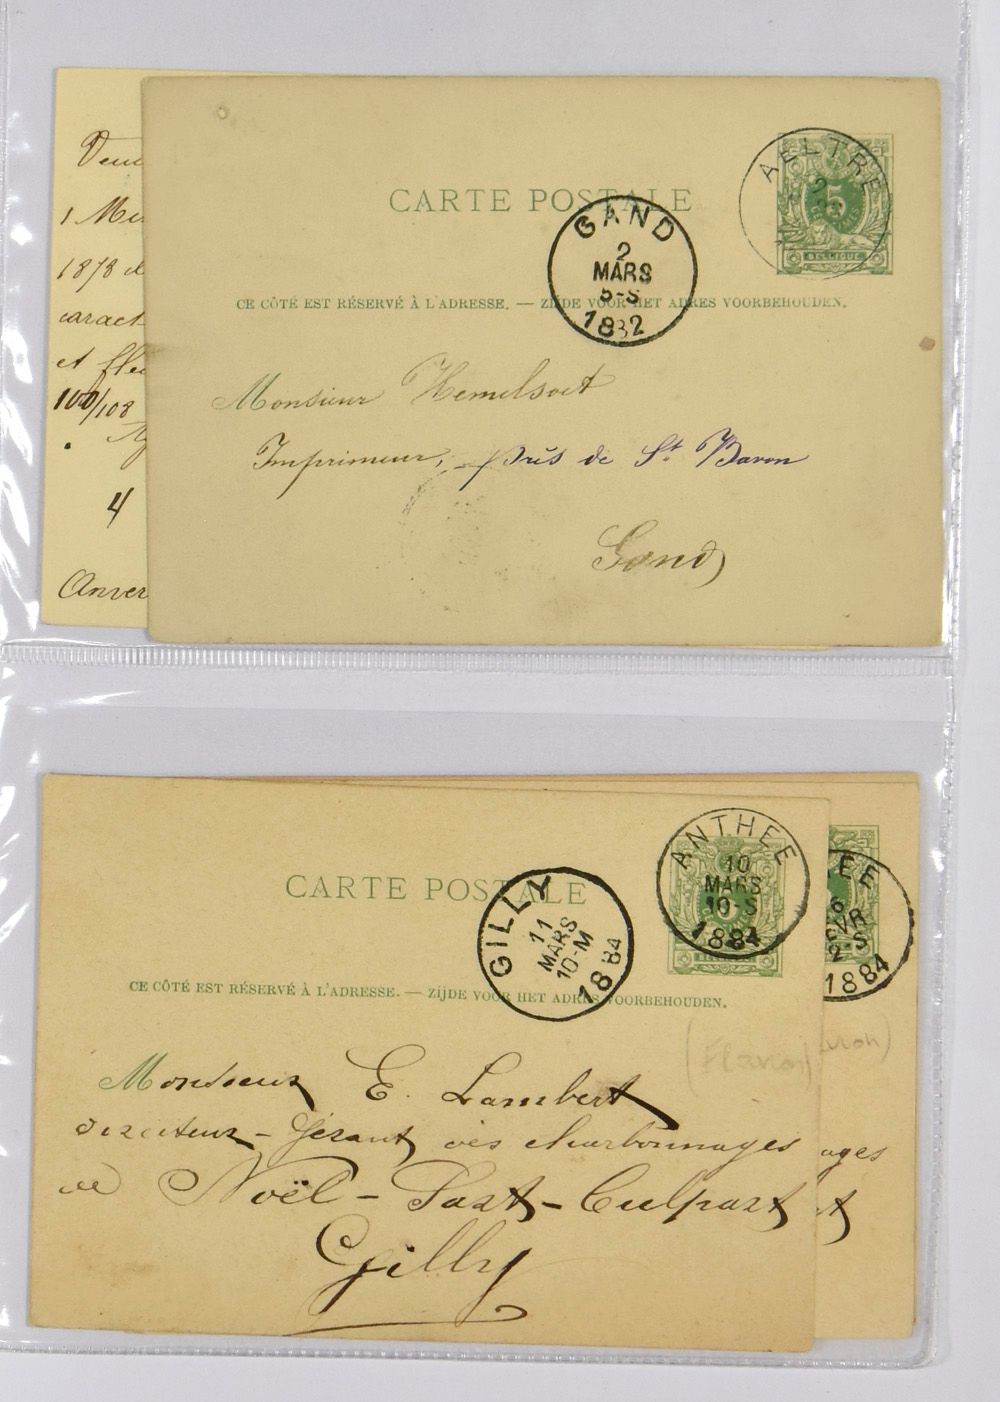 1878
caract
et
100/108
4
Anver
CARTE POSTALE
AELTRE
2
5
BELGIQUE
GAND
2
MARS
5-S
1882
CE CÔTÉ EST RÉSERVÉ À L'ADRESSE. — ZIJDE VOOR HET ADRES VOORBEHOUDEN.
Monsieur Hemelsoet
Imprimeur, près de St. Bavon
Gand
CARTE POSTALE
ANTHEE
10
MARS
10-S
1884
EE
6
EVR
2 S
1884
GILLY
11
MARS
10-M
1884
CE CÔTÉ EST RÉSERVÉ À L'ADRESSE. — ZIJDE VOOR HET ADRES VOORBEHOUDEN.
(Flavion)
Monsieur E. Lambert
Directeur-Gérant des charbonnages
ages
de Noël-Sart-Culpart
t
Gilly